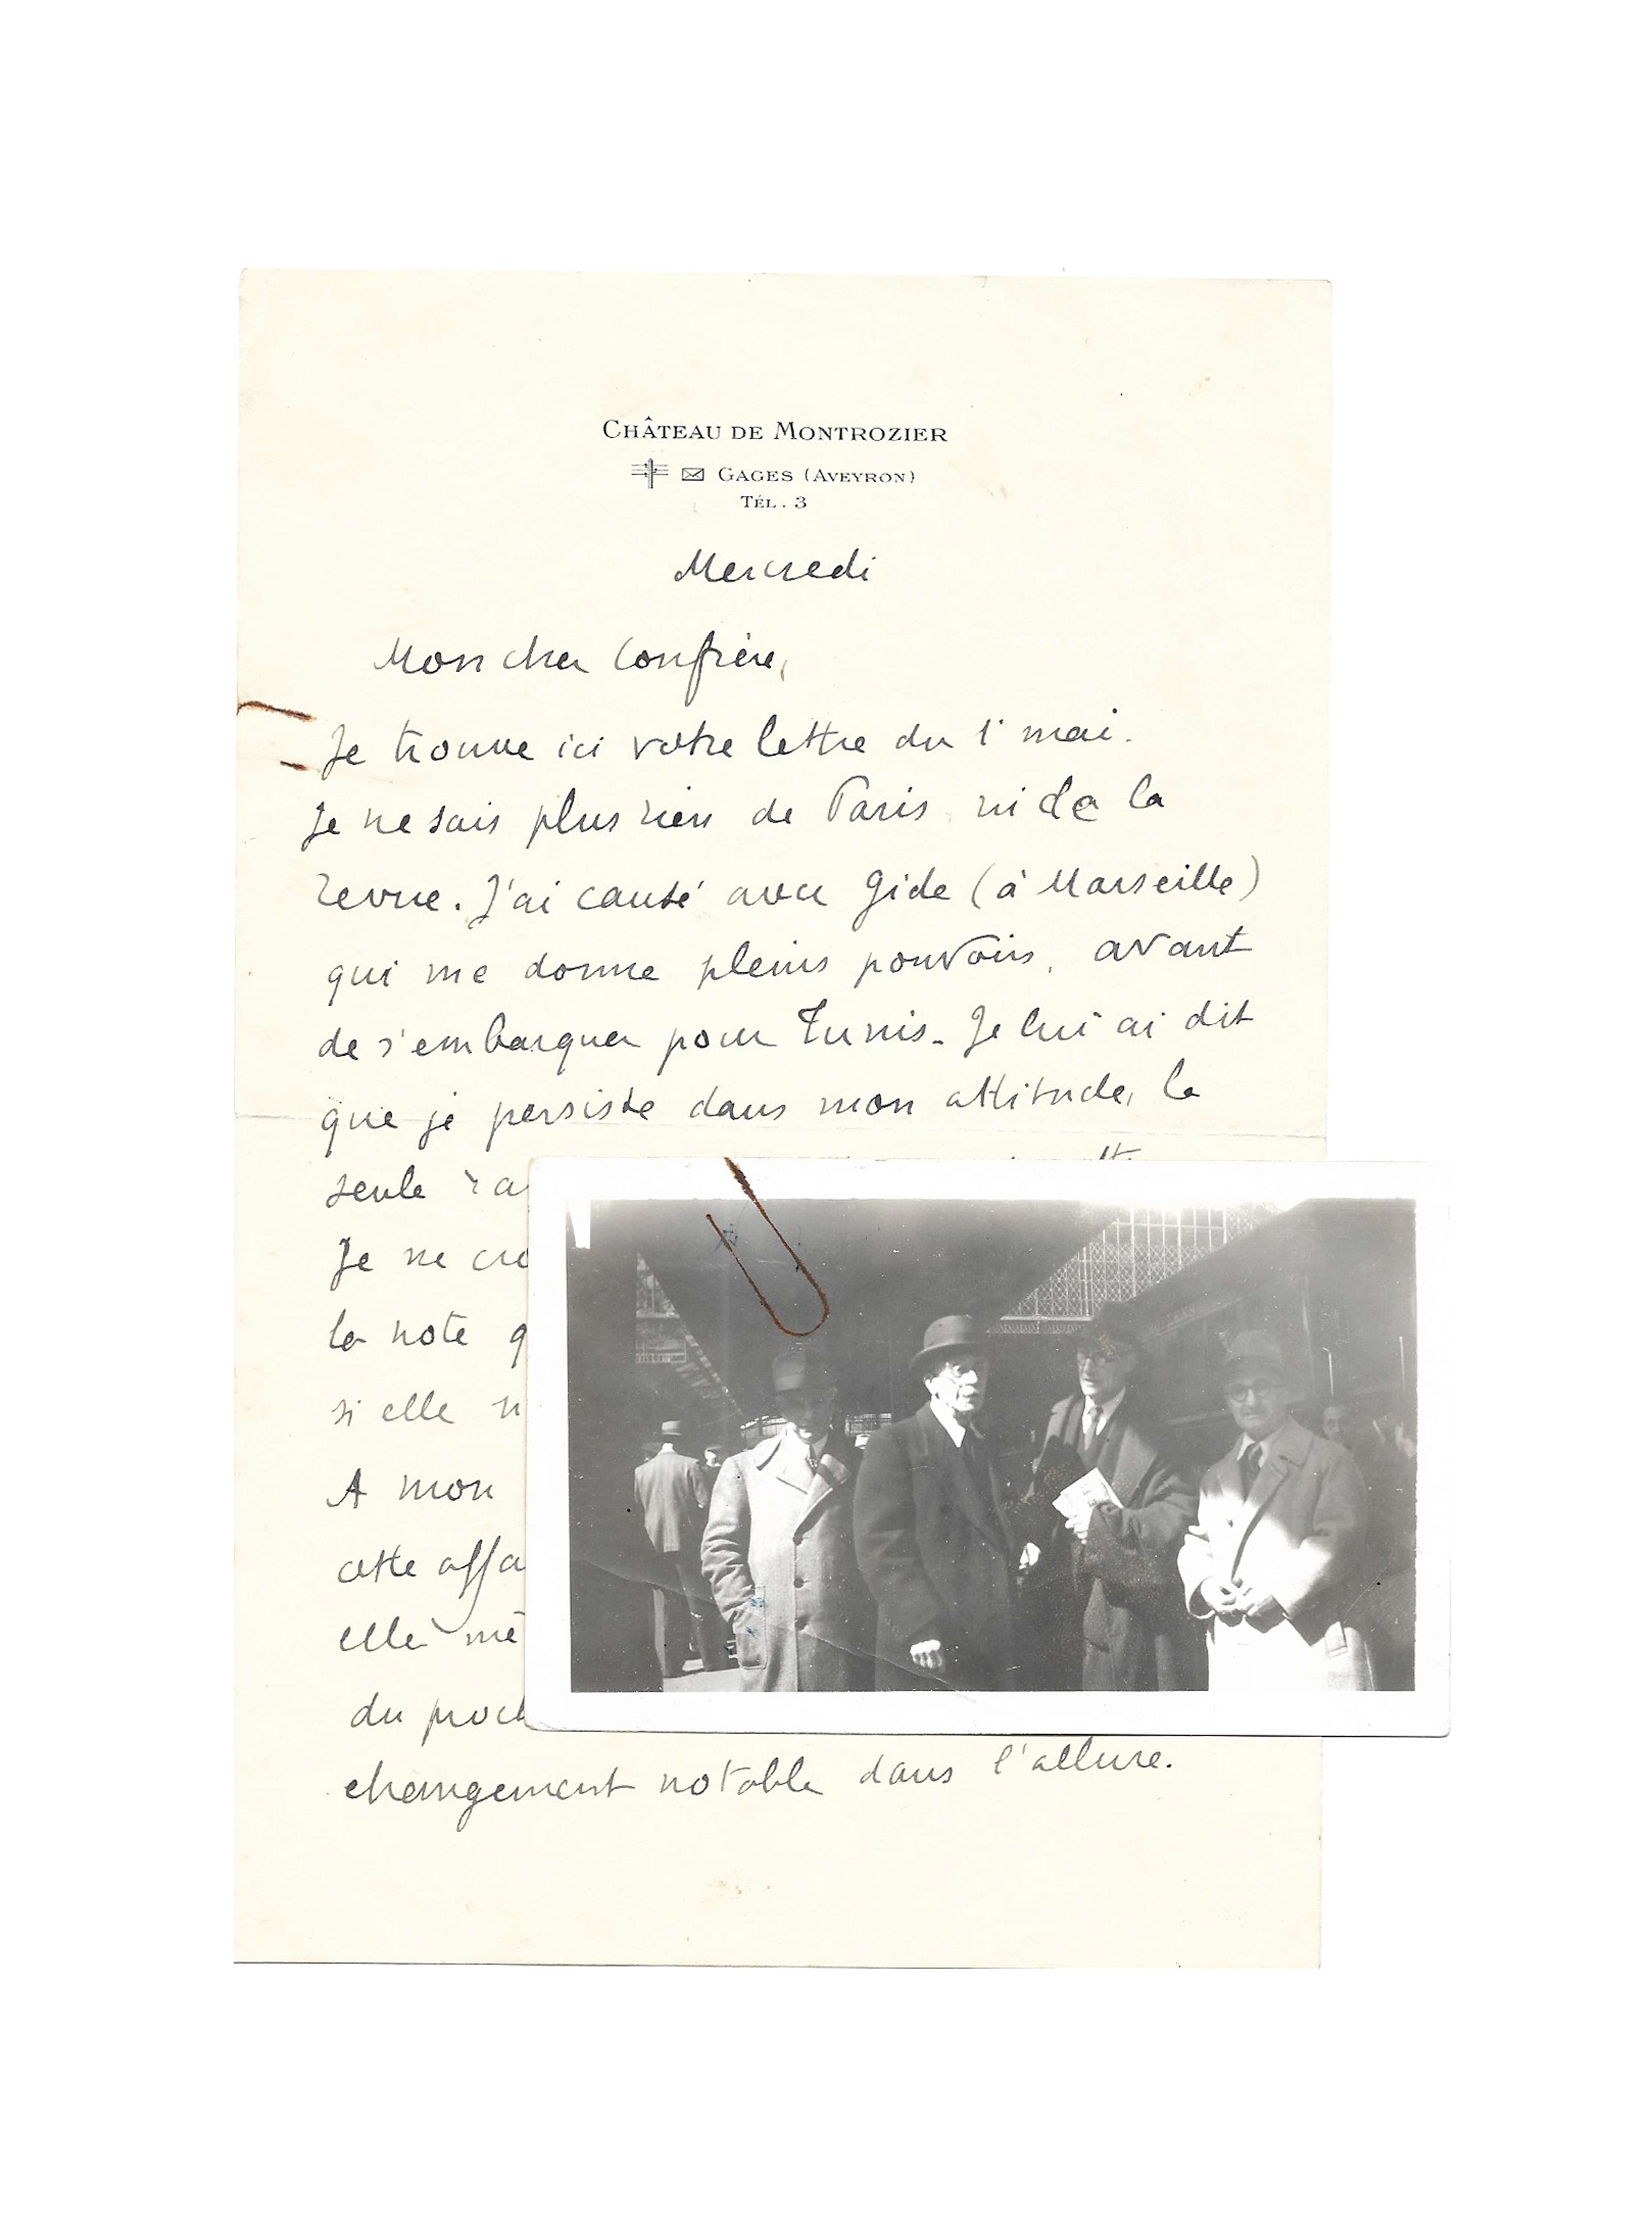 CHÂTEAU DE MONTROZIER
GAGES (AVEYRON)
TÉL. 3
Mercredi
Mon cher Confrère,
Je trouve ici votre lettre du 1er mai.
Je ne sais plus rien de Paris, ni de la
revue. J'ai causé avec Gide (à Marseille)
qui me donne pleins pouvoirs, avant
de s'embarquer pour Tunis. Je lui ai dit
que je persiste dans mon attitude, la
seule ra
Je ne cro
la note q
si elle n
A mon
cette affa
elle mê
du proch
changement notable dans l'allure.